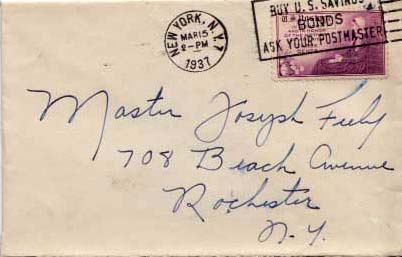 NEW YORK, N.Y.
MAR 15
2-PM
1937
BUY U.S. SAVINGS
BONDS
ASK YOUR POSTMASTER
Master Joseph Feely
708 Beach Avenue
Rochester
N.Y.